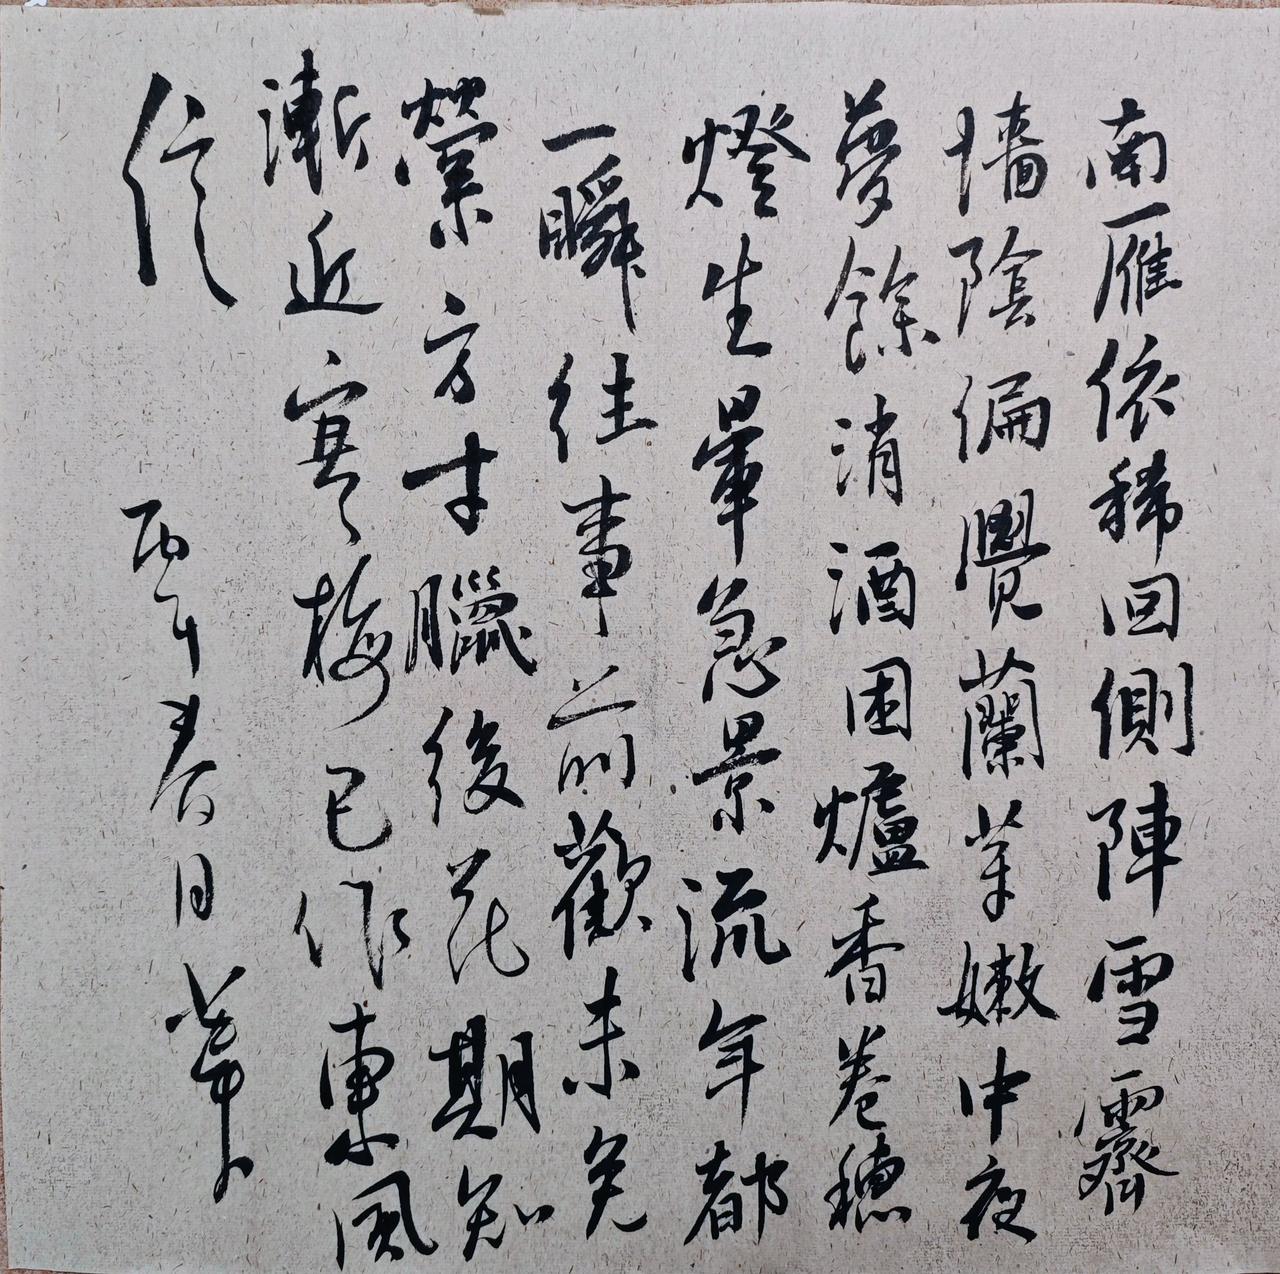 南雁依稀回側陣雪霽
墻陰偏覺蘭芽嫩中夜
夢餘消酒困爐香卷穗
燈生暈急景流年都
一瞬往事前歡未免
縈方寸臘後花期知
漸近寒梅已作東風
信
丙午春月